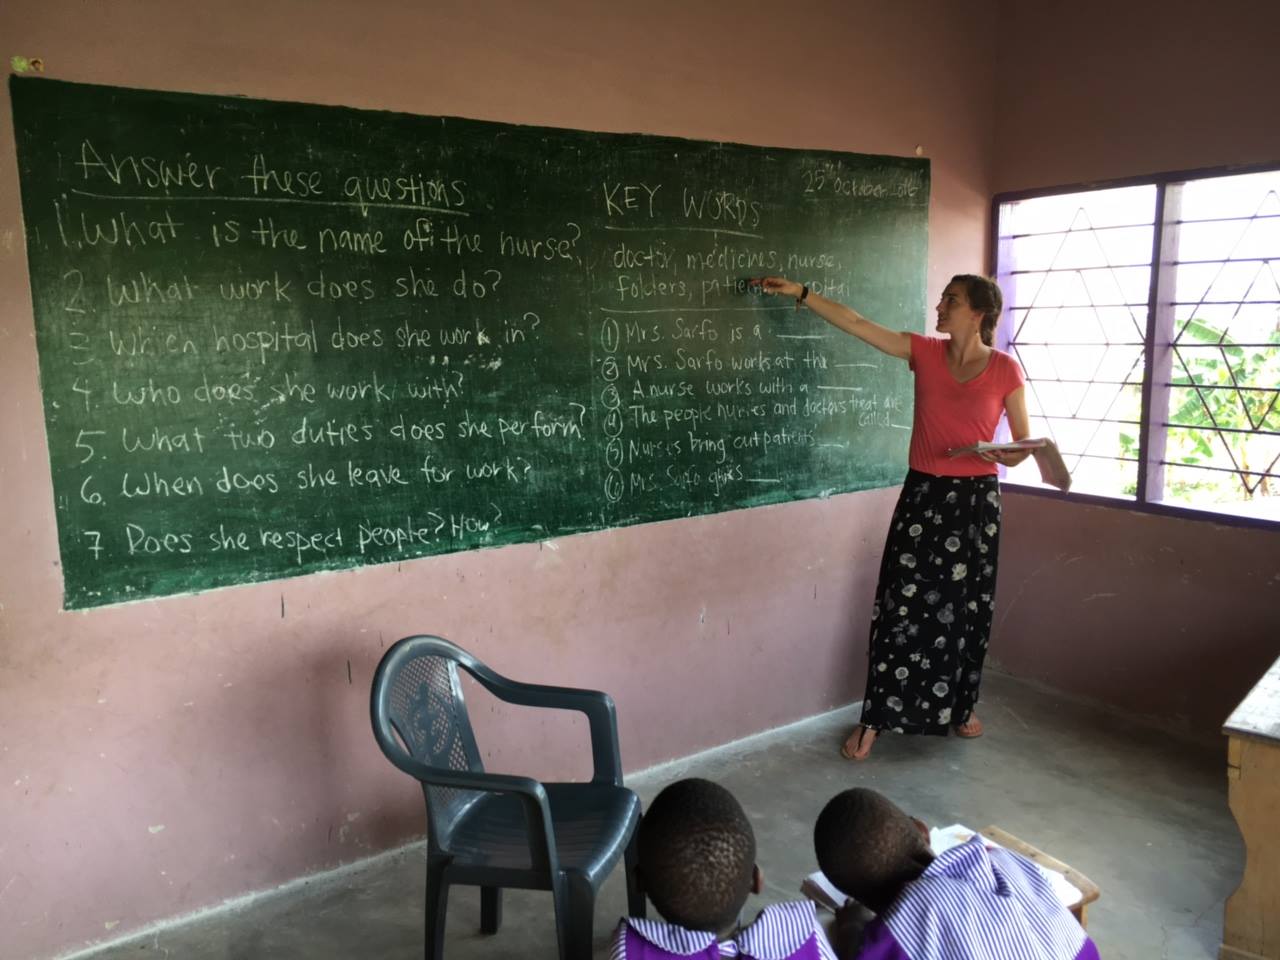 Answer these questions
1. What is the name of the nurse?
2. What work does she do?
3. Which hospital does she work in?
4. Who does she work with?
5. What two duties does she perform?
6. When does she leave for work?
7 Does she respect people? How?
25th October 2016
KEY WORDS
doctor, medicines, nurse,
folders, patients, hospital
① Mrs. Sarfo is a ____
② Mrs. Sarfo works at the ____
③ A nurse works with a ____
④ The people nurses and doctors treat are
called ____
⑤ Nurses bring out patients ____
⑥ Mrs. Sarfo gives ____